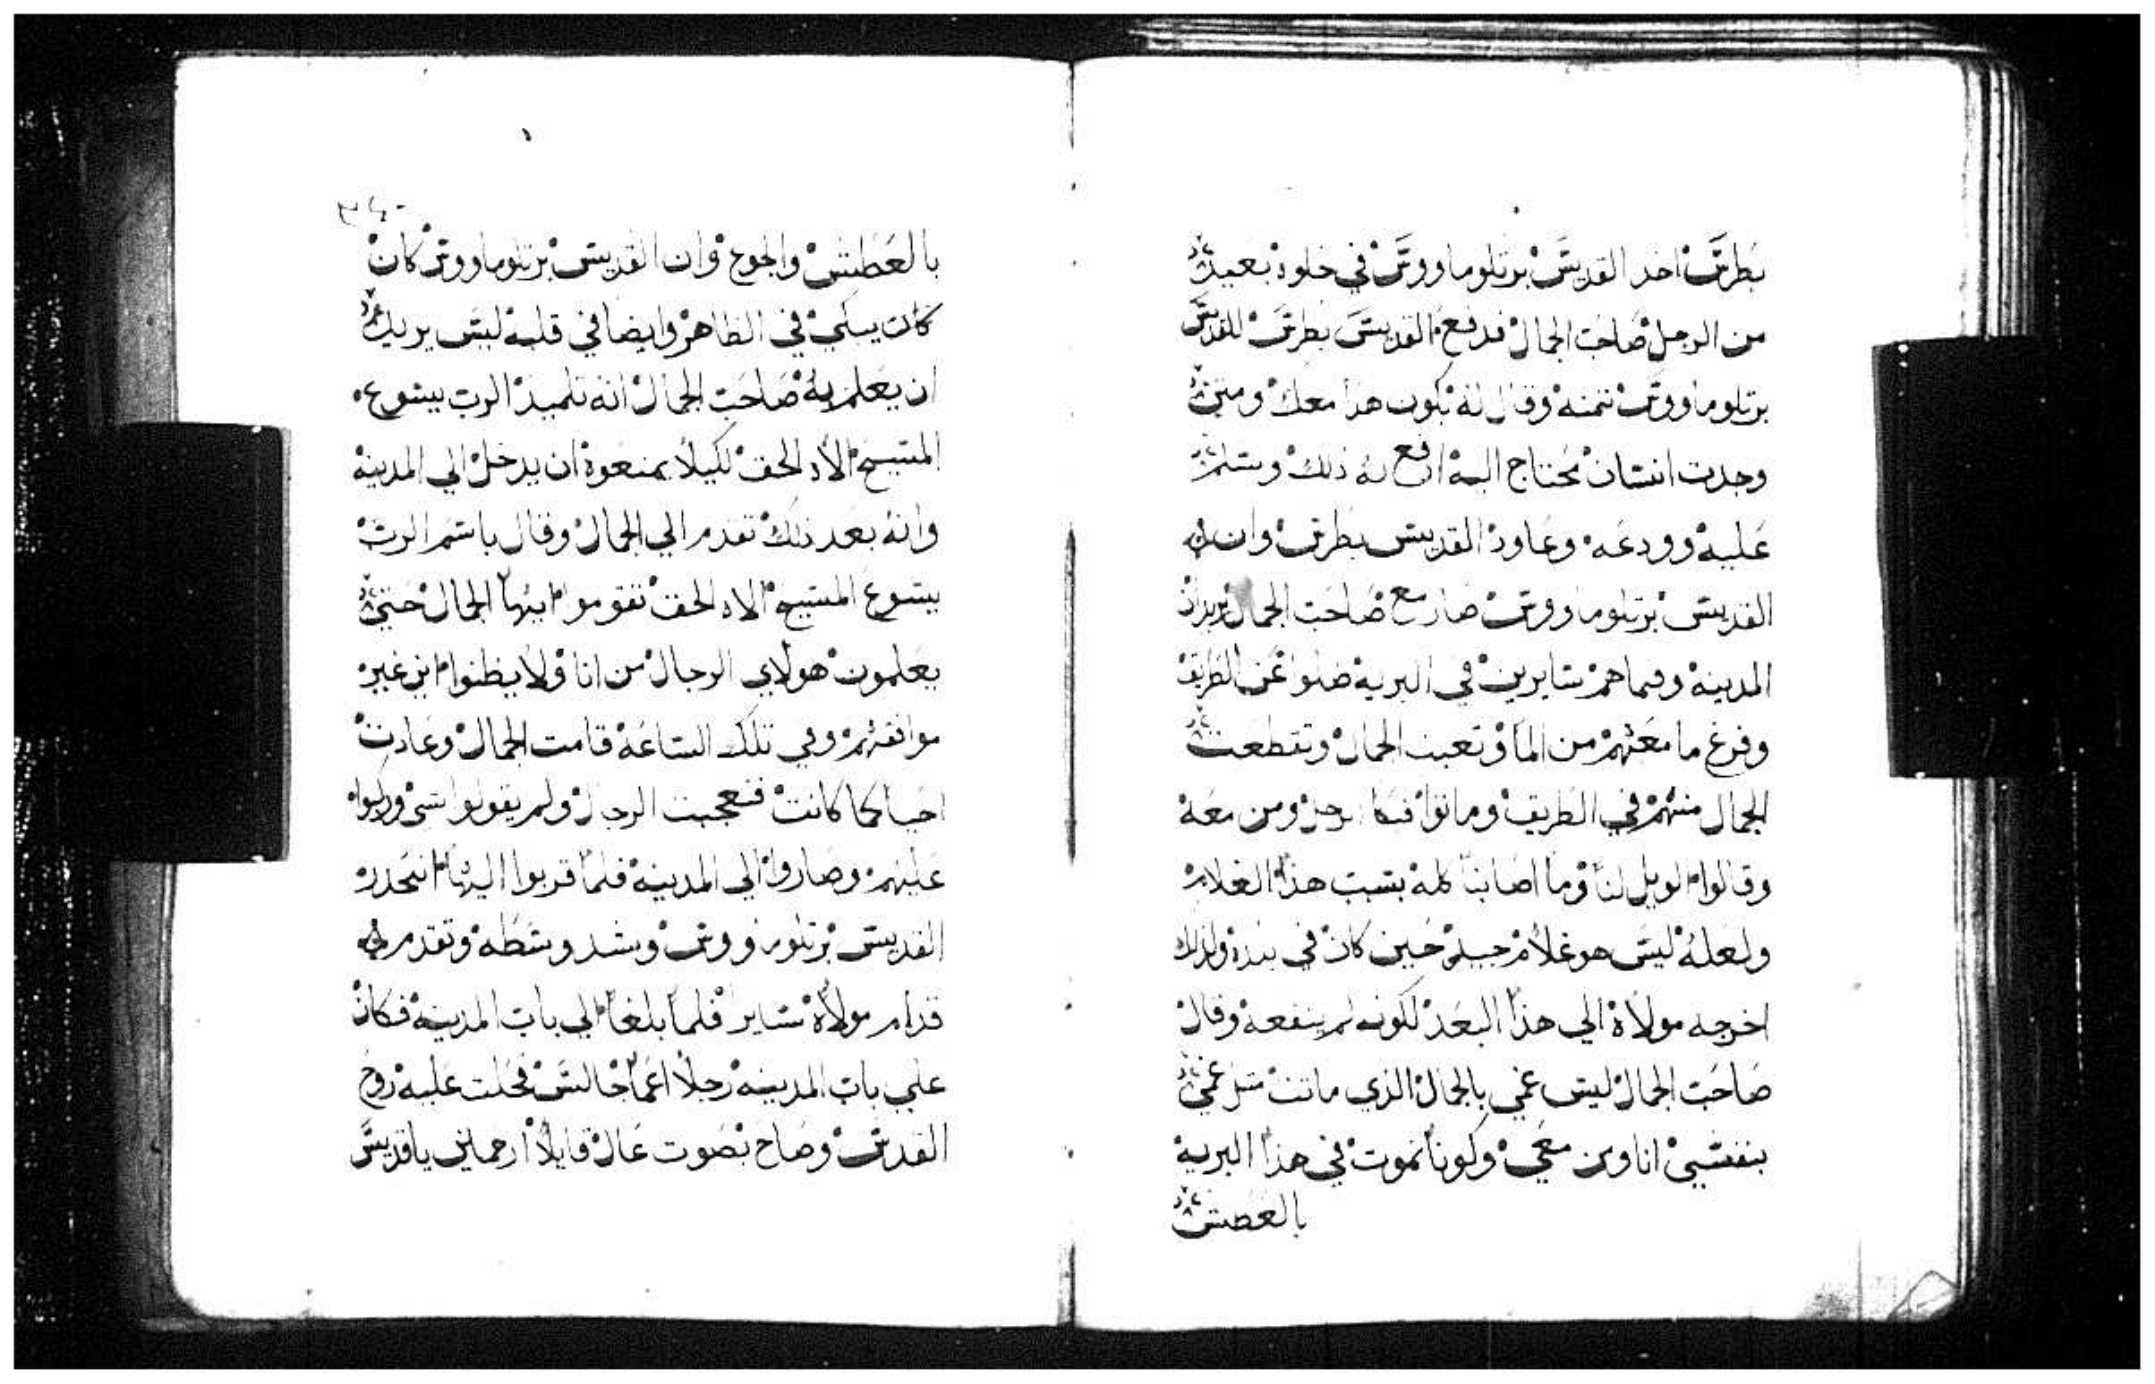 بطرس اخد القديس برتلوماووس في خلوه بعيد
من الرجل صاحب الجمال فدفع القديس بطرس للقديس
برتلوماووس تمنه وقال له يكون هدا معك ومتي
وجدت انسان محتاج اليه ادفع له ذلك وسلم
عليه وودعه وعاود القديس بطرس وان
القديس برتلوماووس صار مع صاحب الجمال يريد
المدينه وفيما هم سايرين في البريه ضلوا عن الطريق
وفرغ ما معهم من الما وتعبت الجمال وتقطعت
الجمال منهم في الطريق وماتوا فبكا الرجل ومن معه
وقالوا الويل لنا وما اصابنا كله بسبب هذا الغلام
ولعله ليس هو غلام جيد حين كان في بلده ولذلك
اخرجه مولاه الي هذا البعد لكونه لم ينفعه وقال
صاحب الجمال ليس غمي بالجمال الذي ماتت مثل غمي
بنفسي انا ومن معي وكونا نموت في هذا البريه
بالعطش
٣٤٠
بالعطش والجوع وان القديس برتلوماووس كان
كان يبكي في الظاهر وايضا في قلبه ليس يريد
ان يعلم به صاحب الجمال انه تلميذ الرب يسوع
المسيح الاه الحق لكيلا يمنعوه ان يدخل الي المدينه
وانه بعد ذلك تقدم الي الجمال وقال باسم الرب
يسوع المسيح الاه الحق تقوموا ايها الجمال حتي
يعلمون هولاي الرجال من انا ولا يظنوا اني غير
موافقهم وفي تلك الساعه قامت الجمال وعادت
احيا كما كانت فتعجبت الرجال ولم يقولوا شي وركبوا
عليهم وصاروا الي المدينه فلما قربوا اليها انحدر
القديس برتلوماووس وشد وسطه وتقدم
قدام مولاه ساير فلما بلغا الي باب المدينه فكان
علي باب المدينه رجلا اعما جالس فحلت عليه روح
القدس وصاح بصوت عال قايلا ارحمني ياقديس